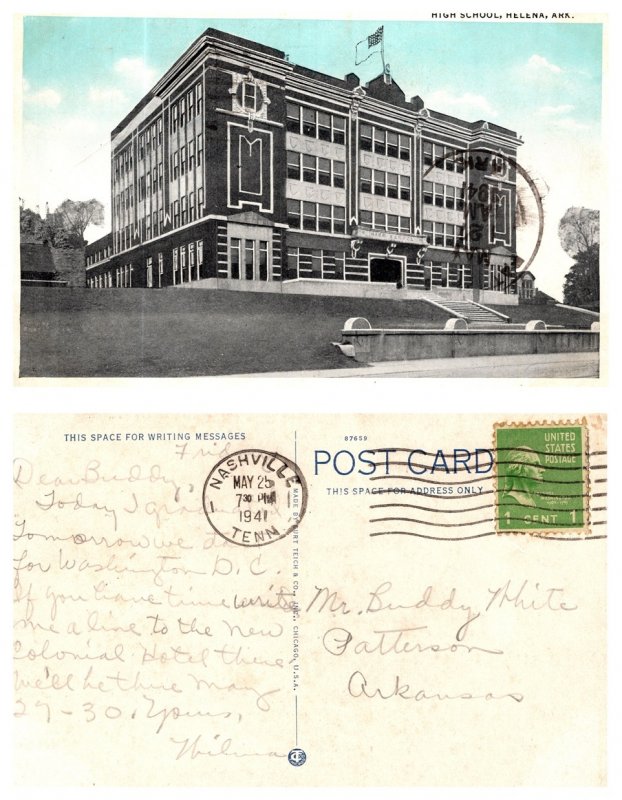 HIGH SCHOOL, HELENA, ARK.
THIS SPACE FOR WRITING MESSAGES
Frid
Dear Buddy,
Today I
Tomorrow we
for Washington D.C.
If you have time write
me a line to the New
Colonial Hotel there
We'll be there May
29-30. Yours,
Wilma
NASHVILLE
MAY 25
7 30 PM
1941
TENN
MADE BY CURT TEICH & CO., INC. CHICAGO, U.S.A.
87659
POST CARD
THIS SPACE FOR ADDRESS ONLY
UNITED
STATES
POSTAGE
1 CENT 1
Mr. Buddy White
Patterson
Arkansas